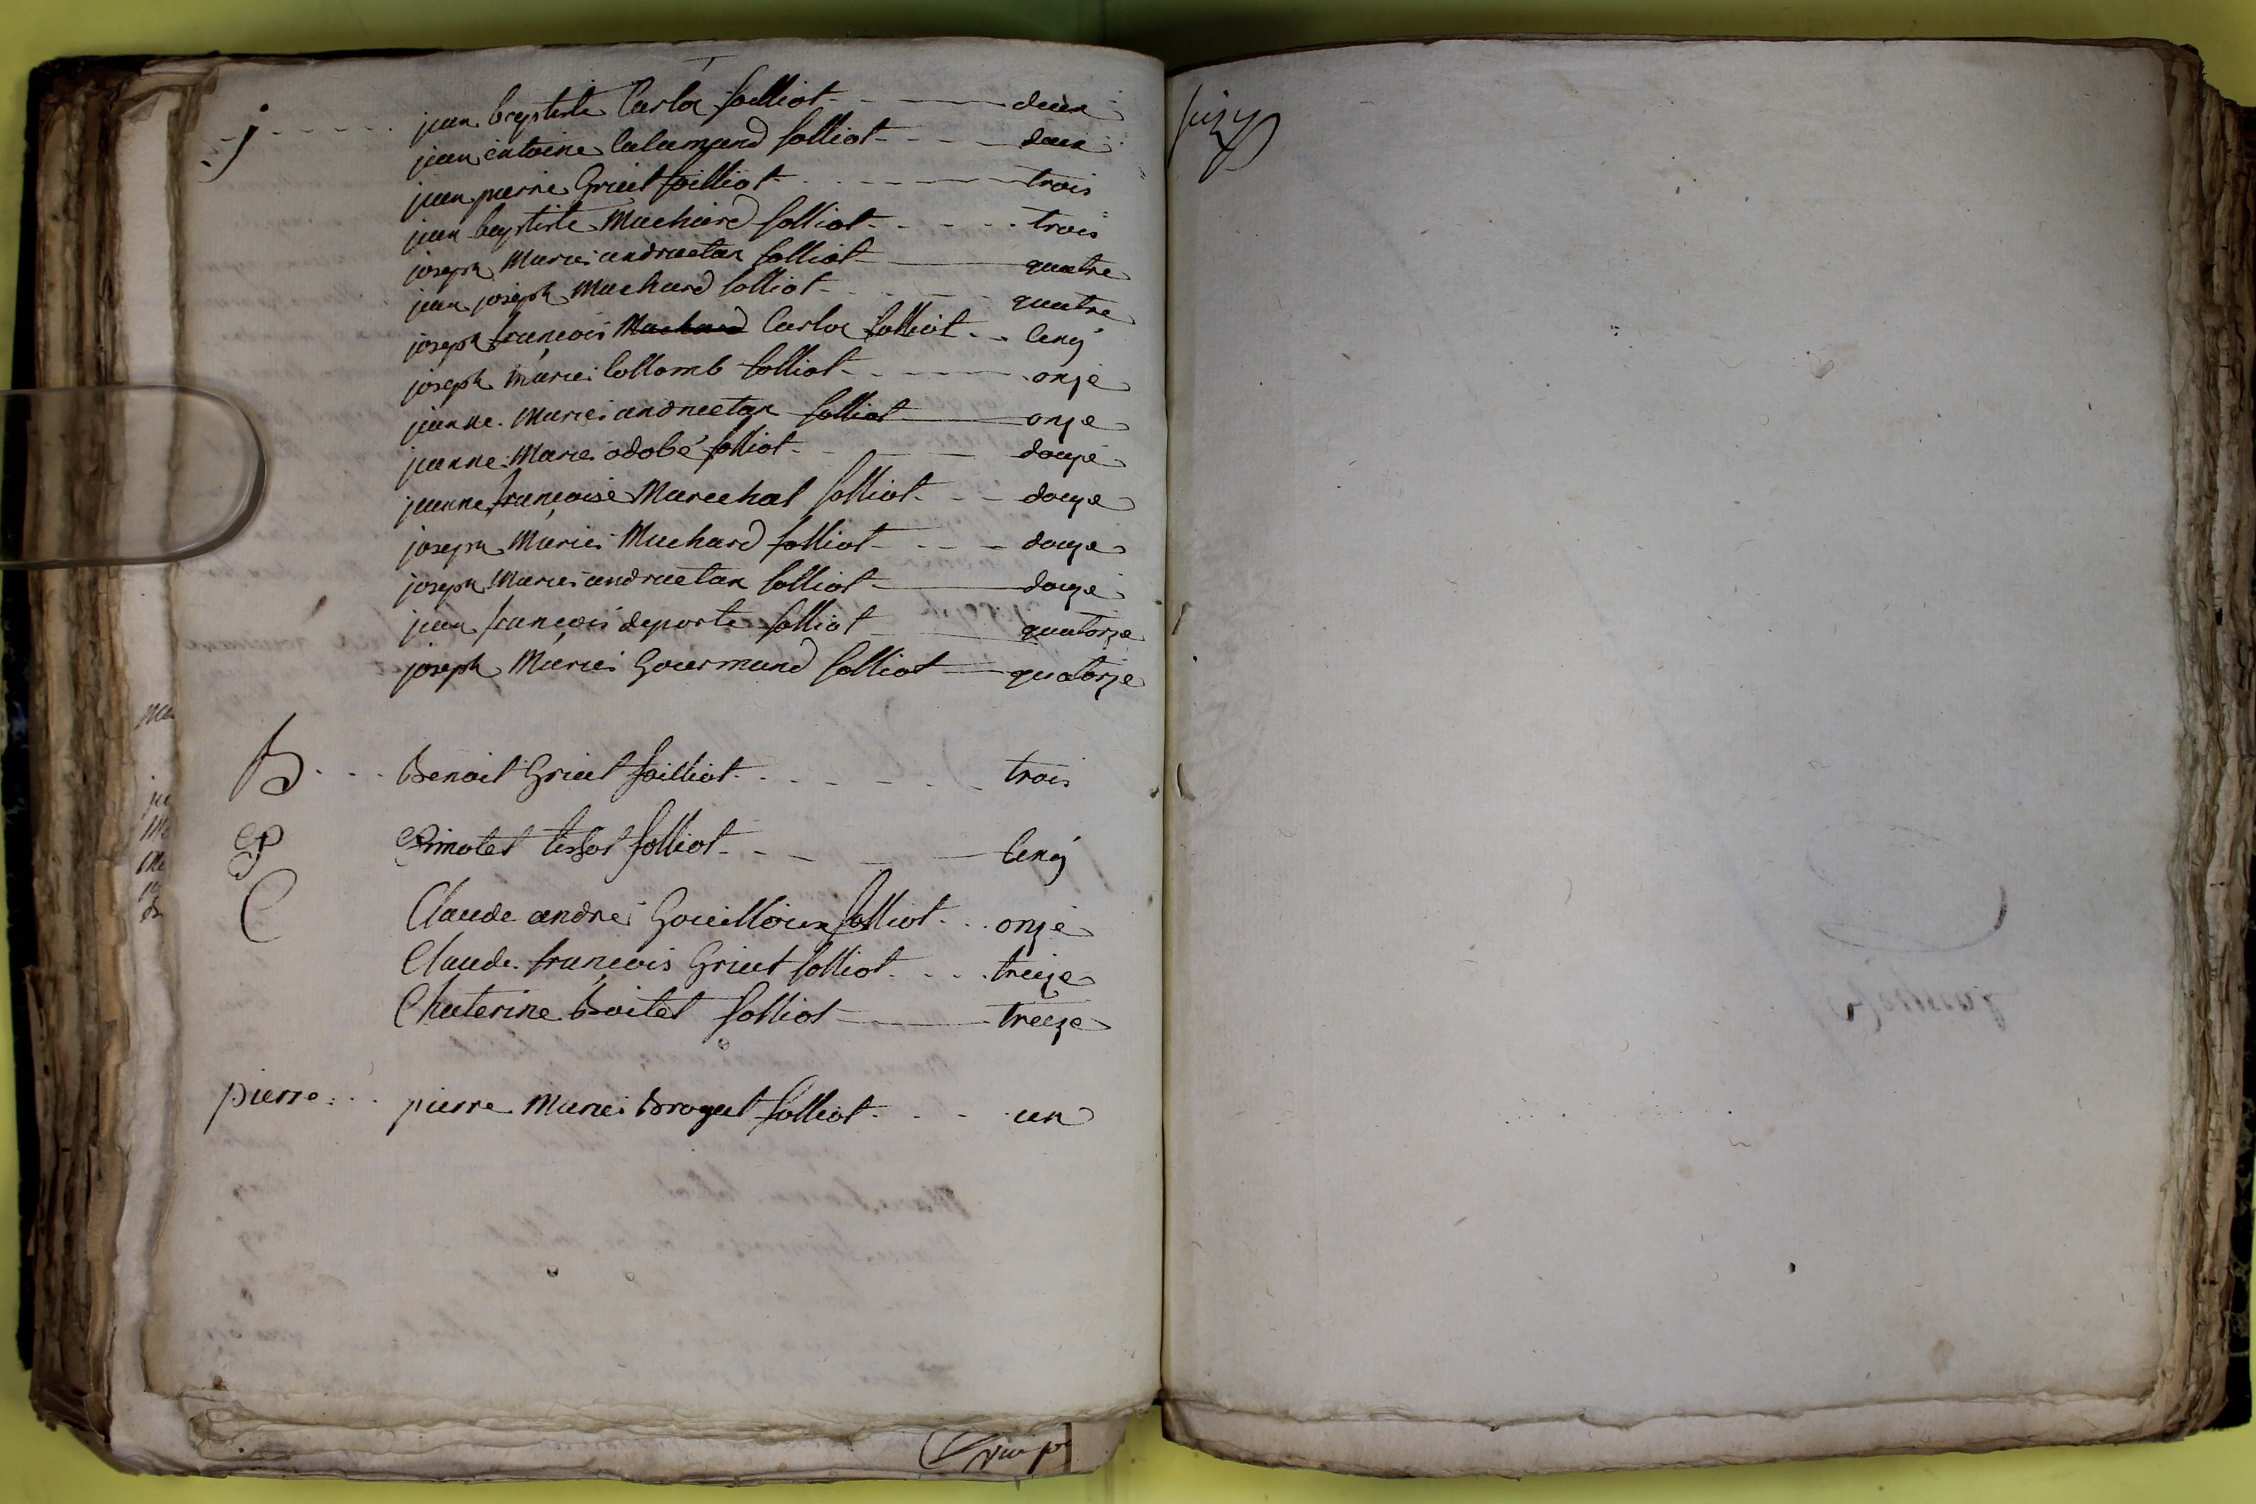 j jean baptiste Carloz foilliot deux
jean antoine Calamand folliot deux
jean pierre Griet foilliot trois
jean baptiste Machard folliot trois
joseph Marie andruetan folliot quatre
jean joseph Machard folliot quatre
joseph françois Machard Carloz folliot cinq
joseph Marie Collomb folliot onze
jeanne Marie andruetan folliot onze
jeanne Marie odobé folliot douze
jeanne françoise Marechal folliot douze
joseph Marie Machard folliot douze
joseph Marie andruetan folliot douze
jean françois deporte folliot quatorze
joseph Marie Gourmand folliot quatorze
B Benoit Griet foilliot trois
P Pimotet tissot folliot cinq
C Claude andré Gouilloux folliot onze
Claude françois Griet folliot treize
Chaterine Boitet folliot treize
pierre pierre Marie Broquet folliot un